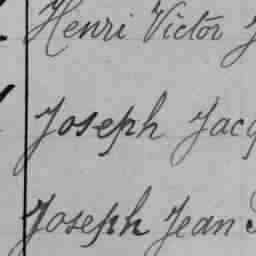 Henri Victor J
Joseph Jacq
Joseph Jean